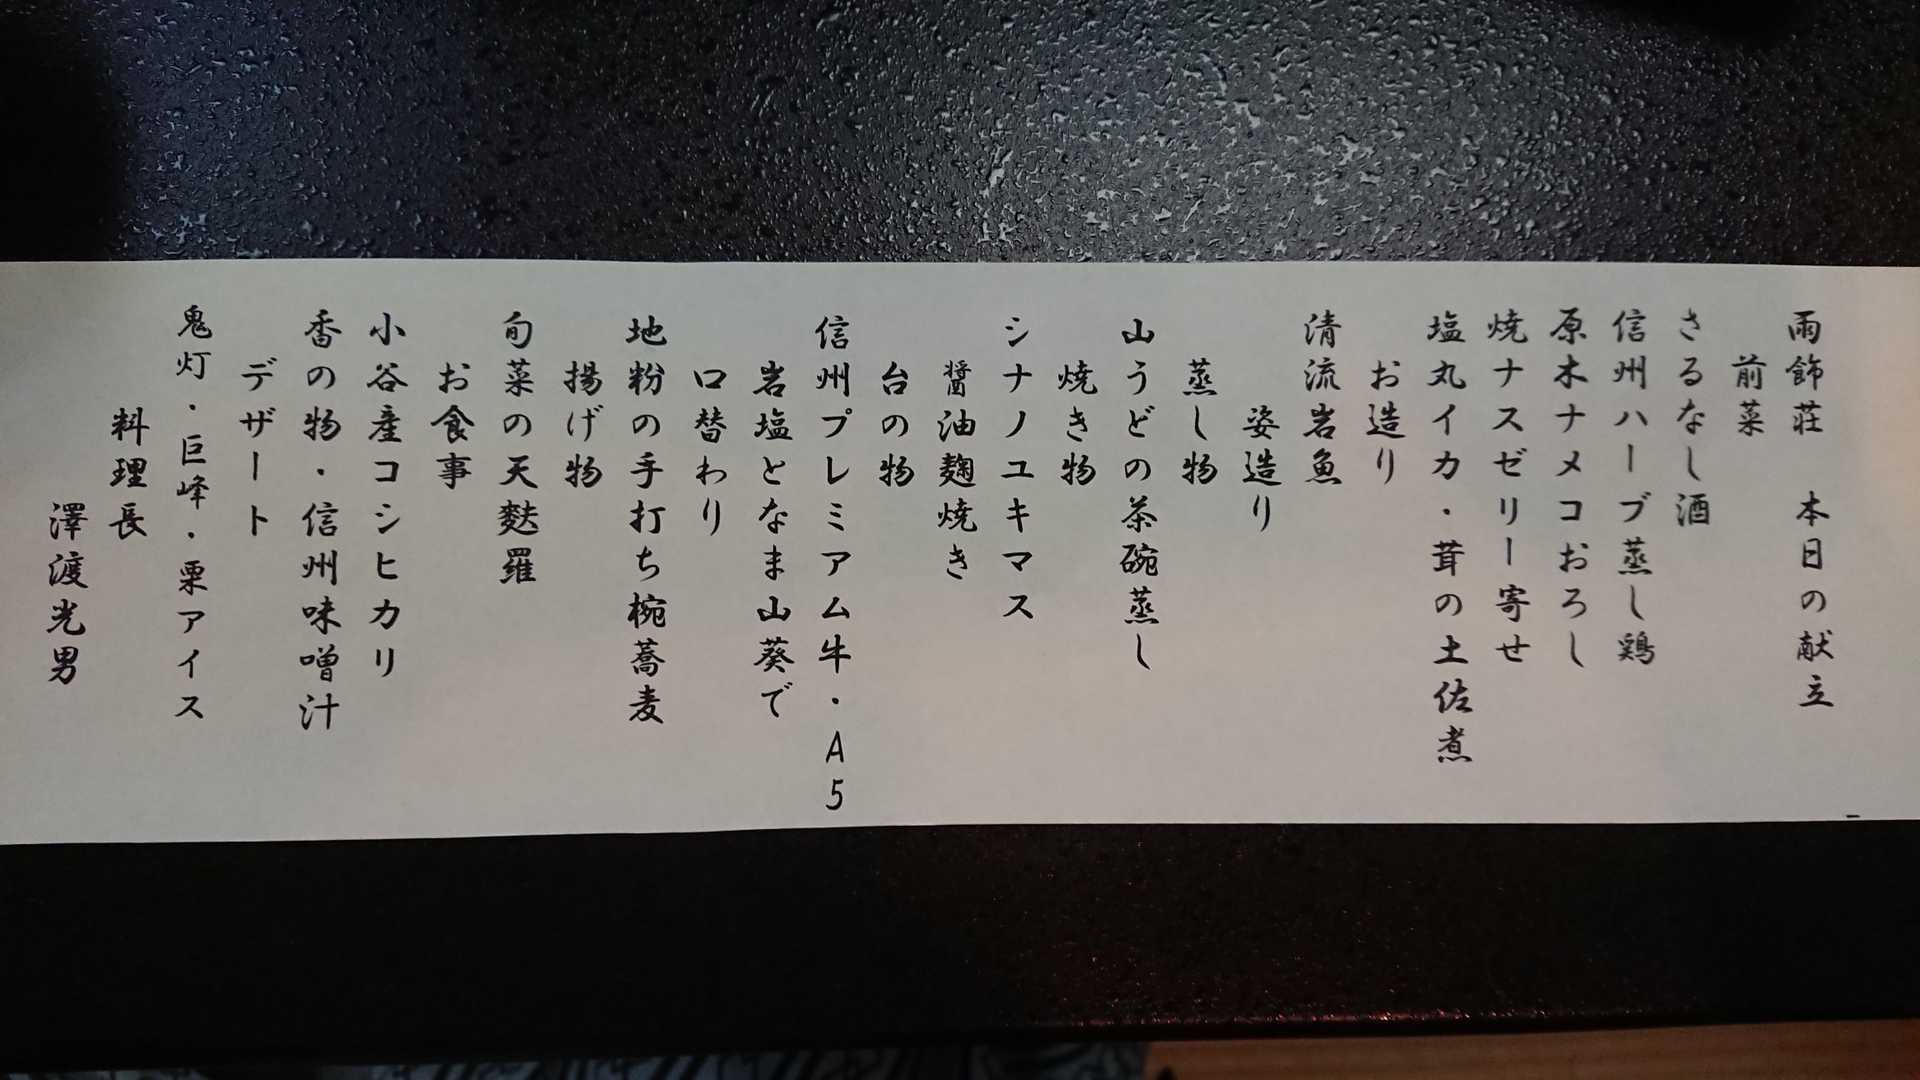 雨飾荘　本日の献立
前菜
さるなし酒
信州ハーブ蒸し鶏
原木ナメコおろし
焼ナスゼリー寄せ
塩丸イカ・茸の土佐煮
お造り
清流岩魚
姿造り
蒸し物
山うどの茶碗蒸し
焼き物
シナノユキマス
醤油麹焼き
台の物
信州プレミアム牛・A5
岩塩となま山葵で
口替わり
地粉の手打ち椀蕎麦
揚げ物
旬菜の天麩羅
お食事
小谷産コシヒカリ
香の物・信州味噌汁
デザート
鬼灯・巨峰・栗アイス
料理長
澤渡光男